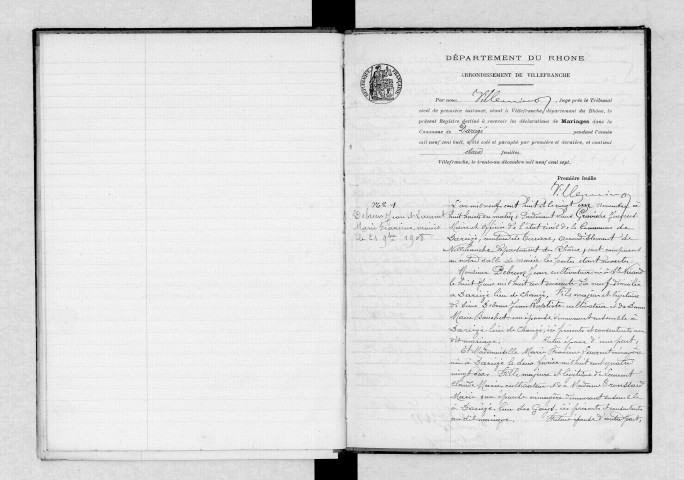 DÉPARTEMENT DU RHONE
ARRONDISSEMENT DE VILLEFRANCHE
Par nous, Juge près le Tribunal
civil de première instance, séant à Villefranche, département du Rhône, le
présent Registre destiné à recevoir les déclarations de Mariages dans la
Commune de Dareizé pendant l'année
mil neuf cent huit, a été coté et paraphé par première et dernière, et contient
feuilles.
Villefranche, le trente-un décembre mil neuf cent sept.
Première feuille
No 1
Jean et Laurent
Marie mariés
le 21 9bre 1908
L'an mil neuf cent huit et le vingt un novembre à
huit heures du matin, Pardevant Nous Jacques
Maire et officier de l'état civil de la Commune de
Dareizé, canton de Tarare, arrondissement de
Villefranche, département du Rhône, ont comparu
en notre salle de mairie les portes étant ouvertes
Monsieur Jean cultivateur né à St
le huit mil huit cent soixante dix neuf domicilié
à Dareizé lieu de Fils majeur et légitime
de Jean Baptiste cultivateur et de Dame
Marie son épouse demeurant ensemble à
Dareizé lieu de ici présents et consentants au
dit mariage. Futur époux d'une part,
Et Mademoiselle Marie Laurent ménagère
née à Dareizé le deux mil huit cent quatre
vingt Fille majeure et légitime de Laurent
Claude Marie, cultivateur et de Madame
Marie son épouse ménagère demeurant ensemble
à Dareizé lieu des ici présents et consentants
au dit mariage. Future épouse d'autre part,